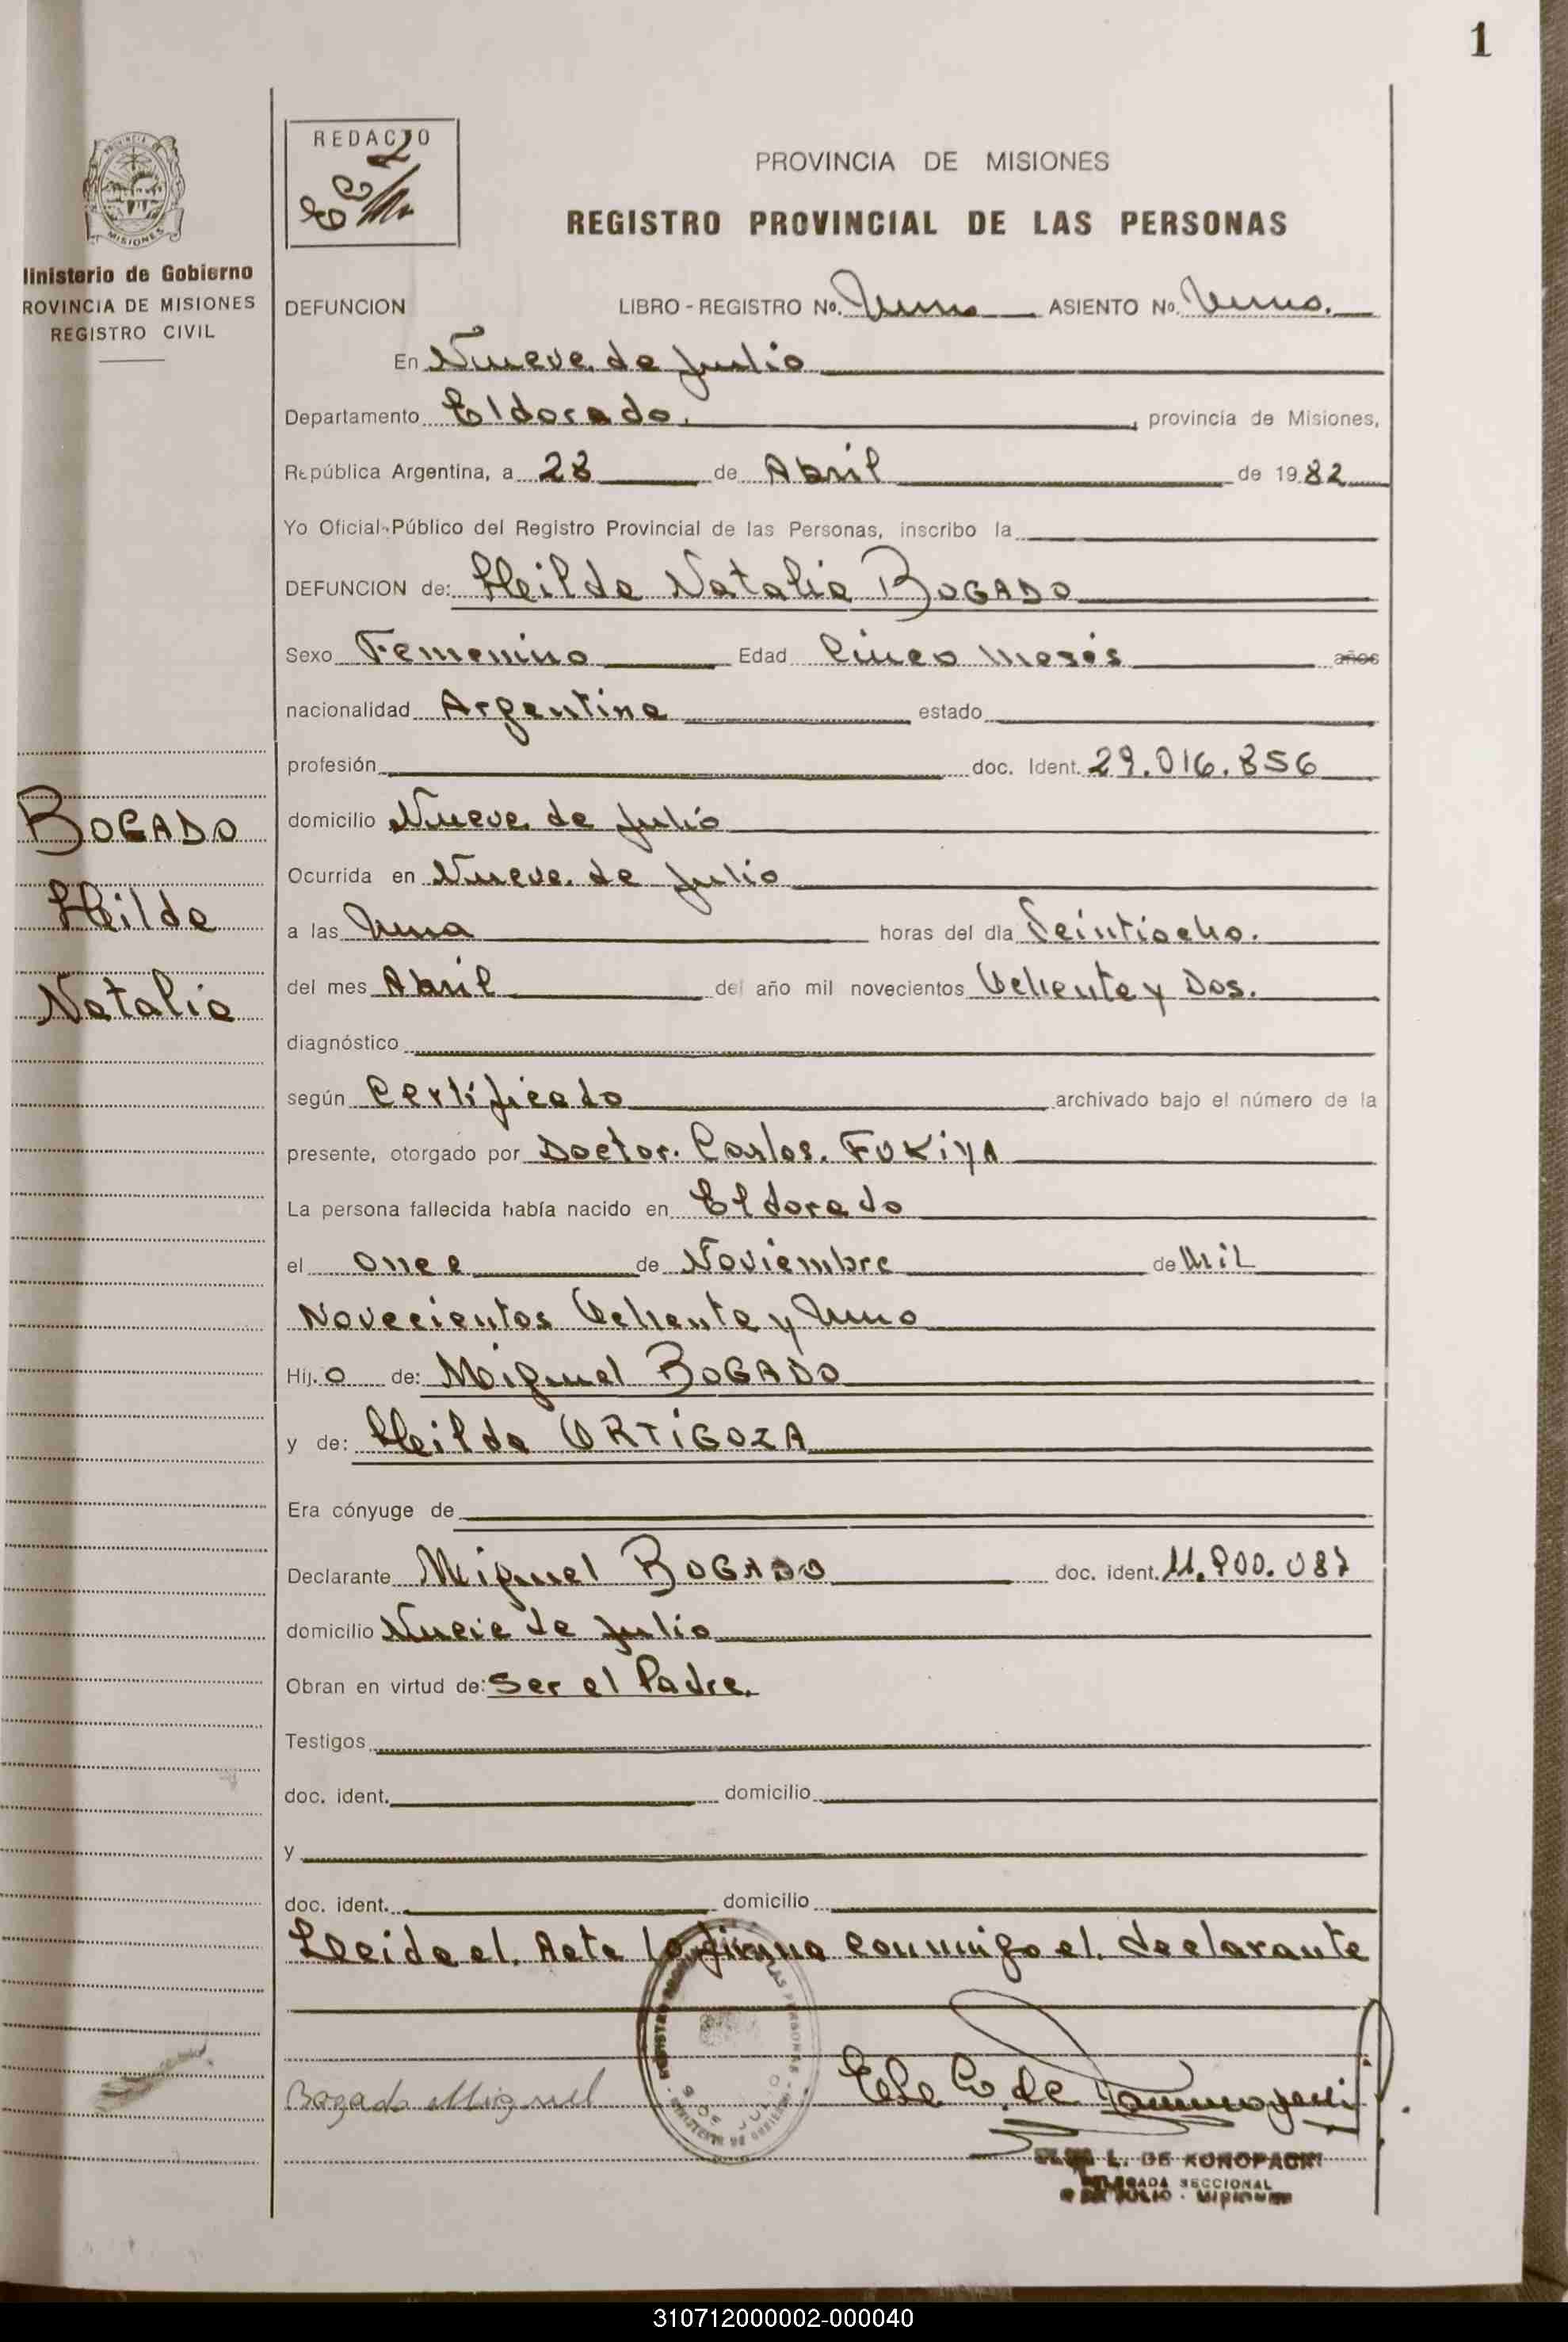 1
REDACTO
PROVINCIA DE MISIONES
REGISTRO PROVINCIAL DE LAS PERSONAS
MISIONES
linisterio de Gobierno
ROVINCIA DE MISIONES
REGISTRO CIVIL
DEFUNCION LIBRO - REGISTRO No. Uno ASIENTO No. Uno.
En Nueve de Julio
Departamento Eldorado, provincia de Misiones,
República Argentina, a 28 de Abril de 1982
Yo Oficial Público del Registro Provincial de las Personas, inscribo la
DEFUNCION de: Hilda Natalia BOGADO
Sexo Femenino Edad Cinco Meses años
nacionalidad Argentina estado
profesión doc. Ident. 29.016.856
BOGADO
Hilda
Natalia
domicilio Nueve de Julio
Ocurrida en Nueve de Julio
a las Una horas del día Veintiocho.
del mes Abril del año mil novecientos Ochenta y Dos.
diagnóstico
según Certificado archivado bajo el número de la
presente, otorgado por Doctor. Carlos. FUKiYA
La persona fallecida había nacido en Eldorado
el once de Noviembre de Mil
Novecientos Ochenta y Uno
Hij.o de: Miguel BOGADO
y de: Hilda ORTiGOZA
Era cónyuge de
Declarante Miguel BOGADO doc. ident. 11.900.087
domicilio Nueve de Julio
Obran en virtud de: Ser el Padre.
Testigos
doc. ident. domicilio
y
doc. ident. domicilio
Leida el. Acta la firma conmigo el. declarante
Bogado Miguel
L. DE KONOPACKI
DELEGADA SECCIONAL
9 DE JULIO - Misiones
310712000002-000040